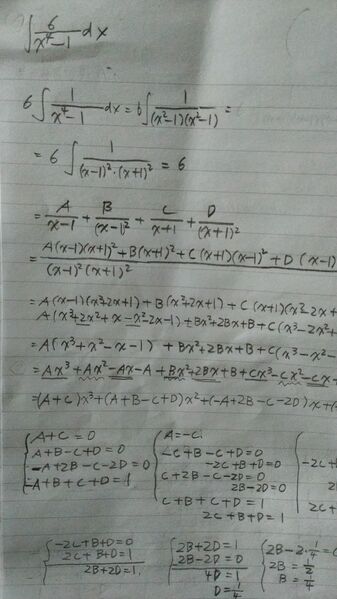 ∫ 6/(x⁴-1) dx
6 ∫ 1/(x⁴-1) dx = 6 ∫ 1/((x²-1)(x²-1)) =
= 6 ∫ 1/((x-1)²·(x+1)²) = 6
= A/(x-1) + B/(x-1)² + C/(x+1) + D/(x+1)²
= A(x-1)(x+1)² + B(x+1)² + C(x+1)(x-1)² + D(x-1)
(x-1)²(x+1)²
= A(x-1)(x²+2x+1) + B(x²+2x+1) + C(x+1)(x²-2x+
A(x³+2x²+x-x²-2x-1) + Bx²+2Bx+B + C(x³-2x²+
= A(x³+x²-x-1) + Bx²+2Bx+B + C(x³-x²-
= Ax³+Ax²-Ax-A+Bx²+2Bx+B+Cx³-Cx²-Cx
= (A+C)x³+(A+B-C+D)x²+(-A+2B-C-2D)x+(-
A+C=0 A=-C
A+B-C+D=0 -C+B-C+D=0 -2C+
-A+2B-C-2D=0 -2C+B+D=0
-A+B+C+D=1 C+2B-C-2D=0
2B-2D=0
C+B+C+D=1 2C+
2C+B+D=1
-2C+B+D=0 2B+2D=1 2B-2·1/4=0
2C+B+D=1 2B-2D=0 2B=1/2
2B+2D=1 4D=1 B=1/4
D=1/4